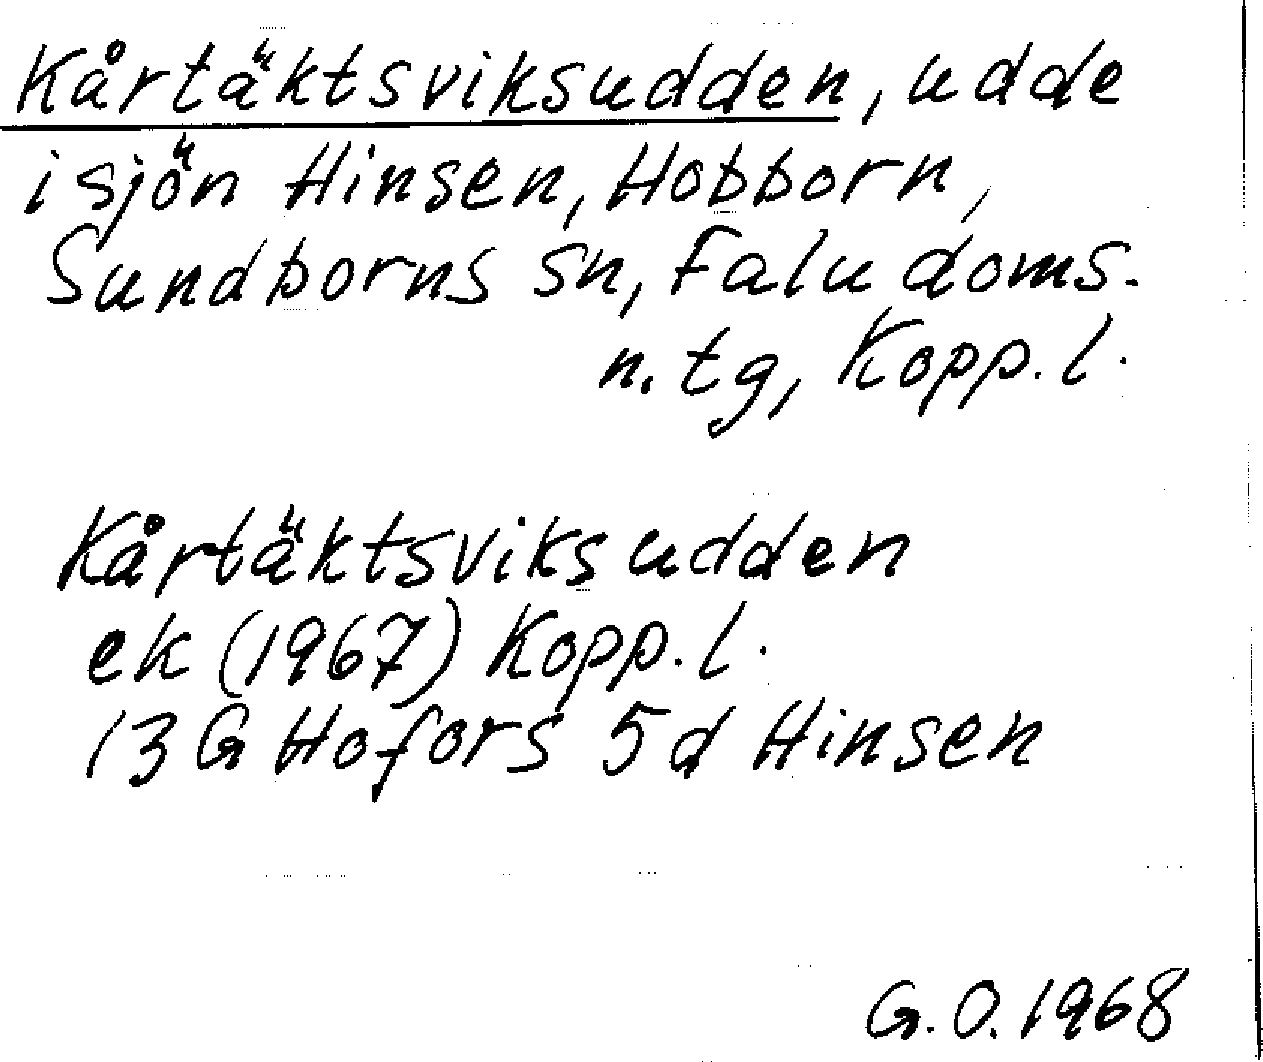 Kårtäktsviksudden, udde
i sjön Hinsen, Hobborn,
Sundborns sn, Falu doms.
n. tg, Kopp. l.
Kårtäktsviksudden
ek (1967) Kopp. l.
13 G Hofors 5d Hinsen
G. O. 1968